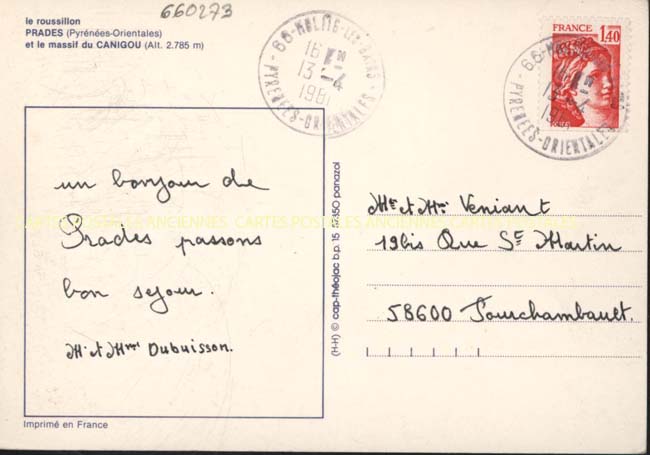 660273
le roussillon
PRADES (Pyrénées-Orientales)
et le massif du CANIGOU (Alt. 2.785 m)
66-MOLITG-LES-BAINS
16 H
13-4
1981
-PYRENEES-ORIENTALES-
FRANCE 1,40
66-MOLITG
13-4
19
PYRENEES-ORIENTALES
un bonjour de
Prades passons
bon sejour.
Mr et Mme Dubuisson.
CARTES POSTALES ANCIENNES CARTES POSTALES ANCIENNES CARTES POSTALES
(H-H) © cap-théojac b.p. 15 87350 panazol
Mr et Mme Veniant
19bis Rue St Martin
58600 Fourchambault.
Imprimé en France